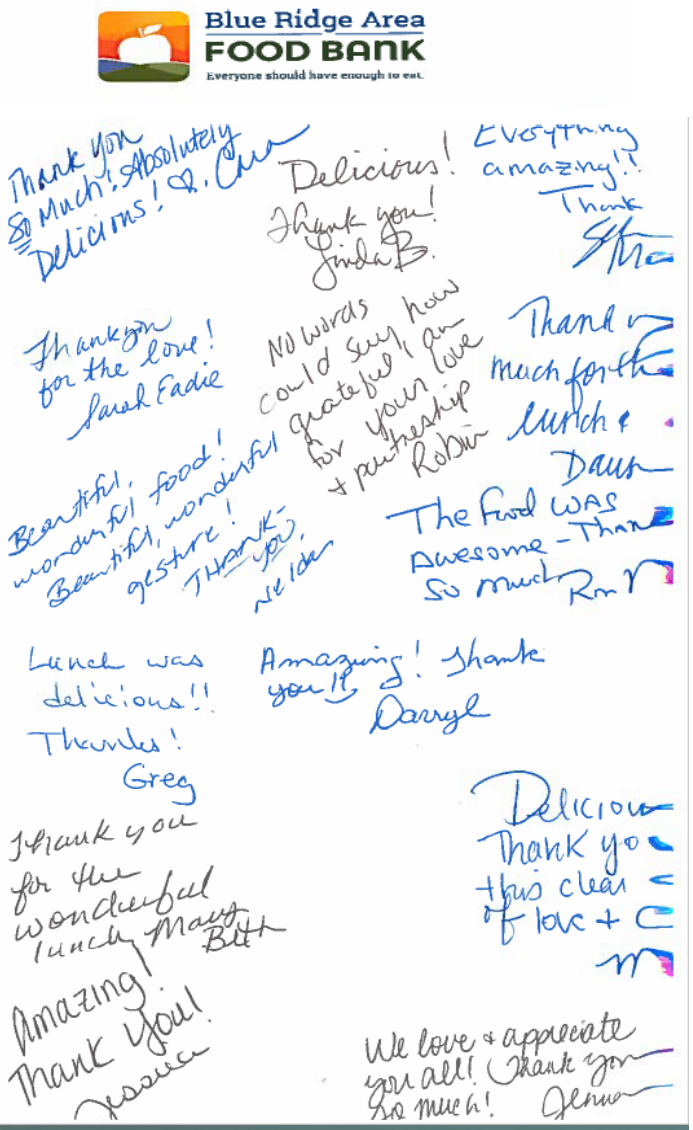 Blue Ridge Area
FOOD BANK
Everyone should have enough to eat.
Thank you
So Much! Absolutely
Delicious!
Delicious!
Thank you!
Linda B.
Everything
amazing!!
Thank
Thankyou
for the love!
Sarah Eadie
No words
could say how
grateful I am
for your love
+ partneship
Robin
Thank
much for th
lunch &
Dawn
Beautiful,
wonderful food!
Beautiful, wonderful
gesture!
THANK-
YOU,
The Food WAS
Awesome - Than
So much
Lunch was
delicious!!
Thanks!
Greg
Amazing! Thank
you!!
Darryl
Thank you
for the
wonderful
lunch, Mary
Beth
Deliciou
Thank yo
this clear
of love +
Amazing!
Thank You!
Jessica
We love & appreciate
you all! Thank you
so much!